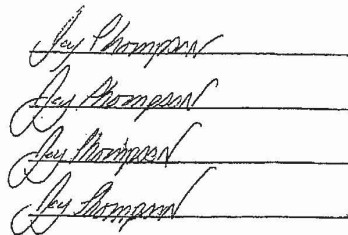 Jay Thompson
Jay Thompson
Jay Thompson
Jay Thompson